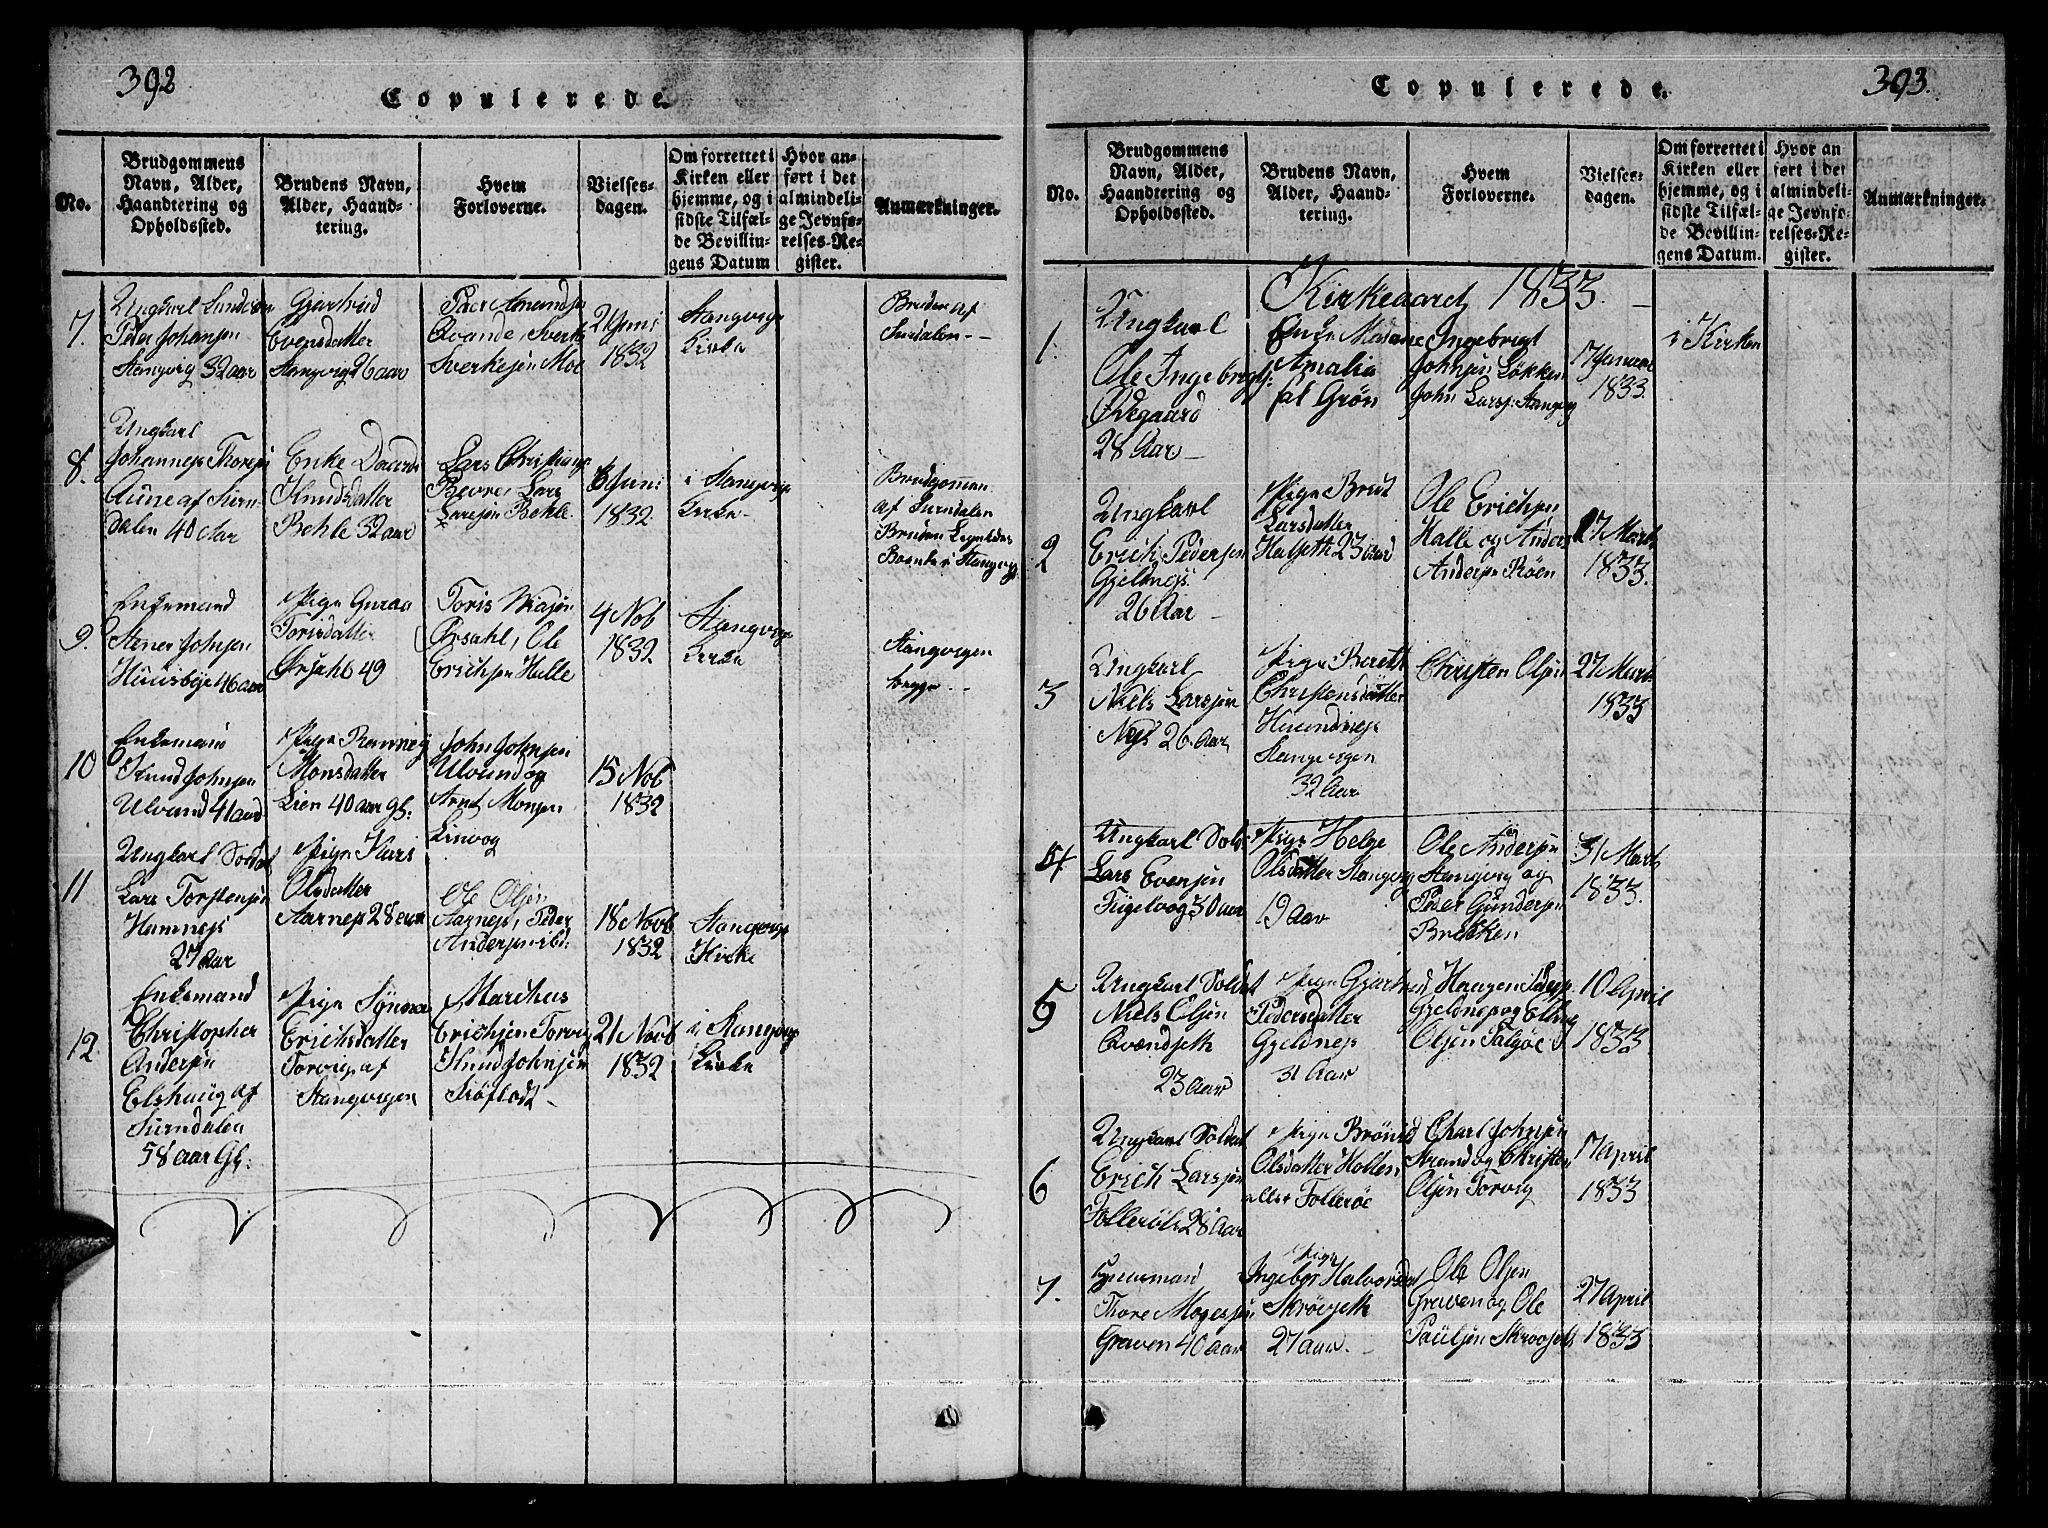 392
Copulerede.
No.
Brudgommens
Navn, Alder,
Haandtering og
Opholdssted.
Brudens Navn,
Alder, Haand-
tering.
Hvem
Forloverne.
Vielses-
dagen.
Om forrettet i
Kirken eller
hjemme, og i
sidste Tilfæl-
de Bevillin-
gens Datum
Hvor an-
ført i det
almindeli-
ge Jevnfø-
relses-Re-
gister.
Anmærkninger.
7.
Ungkarl
Peder Johansen
Stangvig 32 aar
Gjertrud
Evensdatter
Stangvig 26 aar
Peer Amundsen
Qvande, Sverke
Sverkesen Moe
2 Juni
1832
Stangvigs
Kirke
Bruden af
Surdalen
8.
Ungkarl
Johannes Thoresen
Aune af Surn-
dalen 40 Aar
Enke
Knudsdatter
Behle 32 aar
Lars Christians
Bævre, Lars
Larsen Behle
Juni
1832
i Stangvigs
Kirke
Brudgomen
af Surndalen
Bruden
i Stangvig
9.
Enkemand
Stener Johnsen
Huusbye 46 aar
Pige Guraa
Torisdatter
Ørsahl 49
Toris
Ørsahl, Ole
Erichsen Halle
4 Nob
1832
Stangvigs
Kirke
Stangvigen
begge
10
Enkemand
Knud Johnsen
Ulvund 41 aar
Pige Ranneig
Monsdatter
Lien 40 aar gl:
John Johnsen
Ulvund og
Arnt Monsen
Linvog
15 Nob
1832
11
Ungkarl Soldat
Lars Torstensen
Hamnes
27 Aar
Pige Kari
Olsdatter
Aarnes 28 aar
Ole Olsen
Aarnes, Peder
Andersen ibd:
18 Novb
1832
Stangvigs
Kirke
12
Enkemand
Christopher
Andersen
Elshaug af
Surndalen
58 aar Gl:
Pige Synnea
Erichsdatter
Torvig af
Stangvigen
Marchus
Erichsen Torvig
Knud Johnsen
21 Novb
1832
i Stangvigs
Kirke
393.
Copulerede.
No.
Brudgommens
Navn, Alder,
Haandtering og
Opholdssted.
Brudens Navn,
Alder, Haand-
tering.
Hvem
Forloverne.
Vielses-
dagen.
Om forrettet i
Kirken eller
hjemme, og i
sidste Tilfæl-
de Bevillin-
gens Datum.
Hvor an
ført i det
almindeli-
ge Jevnfø-
relses-Re-
gister.
Anmærkninger.
Kirkeaaret 1833.
1.
Ungkarl
Ole Ingebrigts:
Ødegaard
28 Aar
Enke Madame
Amalia
fød Grøn
Ingebrigt
Johnsen Løkken
John Larsen Stangvig
17 Januar
1833.
i Kirken
2
Ungkarl
Erich Pedersen
Gjeldnes
26 Aar
Pige Brut
Larsdatter
Halseth 23 aar
Ole Erichsen
Halle og Anders
Andersen Røen
27 Marts
1833.
3
Ungkarl
Niels Larsen
26 Aar
Pige Bereth
Christensdatter
Stangvigen
32 Aar
Christen Olsen
27 Marts
1833
4
Ungkarl Sold:
Lars Evensen
Fugelvog 30 aar
Pige Helge
Olsdatter Stangvig
19 Aar
Ole Andersen
Stangvig og
Peder Gundersen
Brekken
31 Marts
1833.
5
Ungkarl Soldat
Niels Olsen
Qvændseth
23 Aar
Pige Gjertrud
Pedersdatter
Gjeldnes
31 Aar
Haagen Peders
Gjeldnes og
Olsen Talgøe
10 April
1833
6
Ungkarl Soldat
Erich Larsen
Follerøe 28 Aar
Pige Brønild
Olsdatter Holten
eller Follerøe
Charl Johnsen
Strand og Christen
Olsen Torvig
17 April
1833
7.
Thore Mogensen
Graven 40 aar
Pige
Ingebor Halvorsdat
Skrøvseth
27 aar
Ole Olsen
Graven og Ole
Paulsen Skrøvseth
27 April
1833